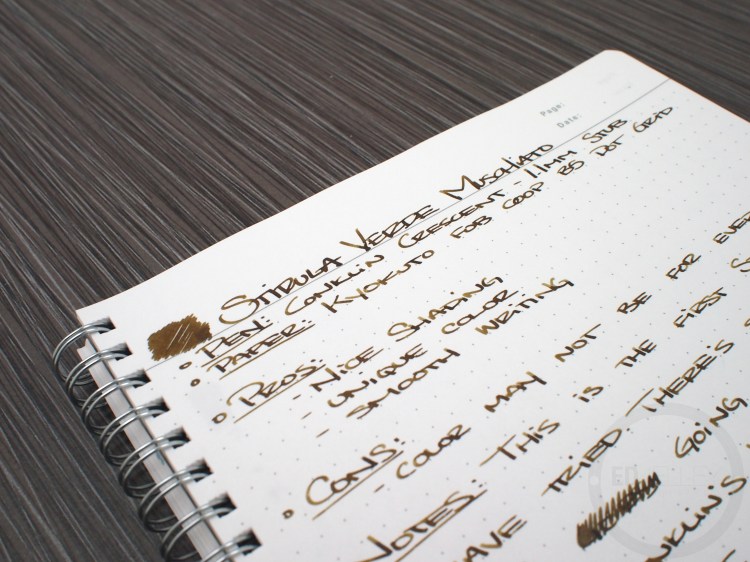 Page:
Date:
STIPULA VERDE MUSCHIATO
° PEN: CONKLIN CRESCENT - 1.1MM STUB
° PAPER: KYOKUTO FOB COOP B5 DOT GRID
° PROS:
- NICE SHADING
- UNIQUE COLOR
- SMOOTH WRITING
° CONS:
- COLOR MAY NOT BE FOR
NOTES: THIS IS THE FIRST
HAVE TRIED. THERE'S
GOING
CONKLIN'S